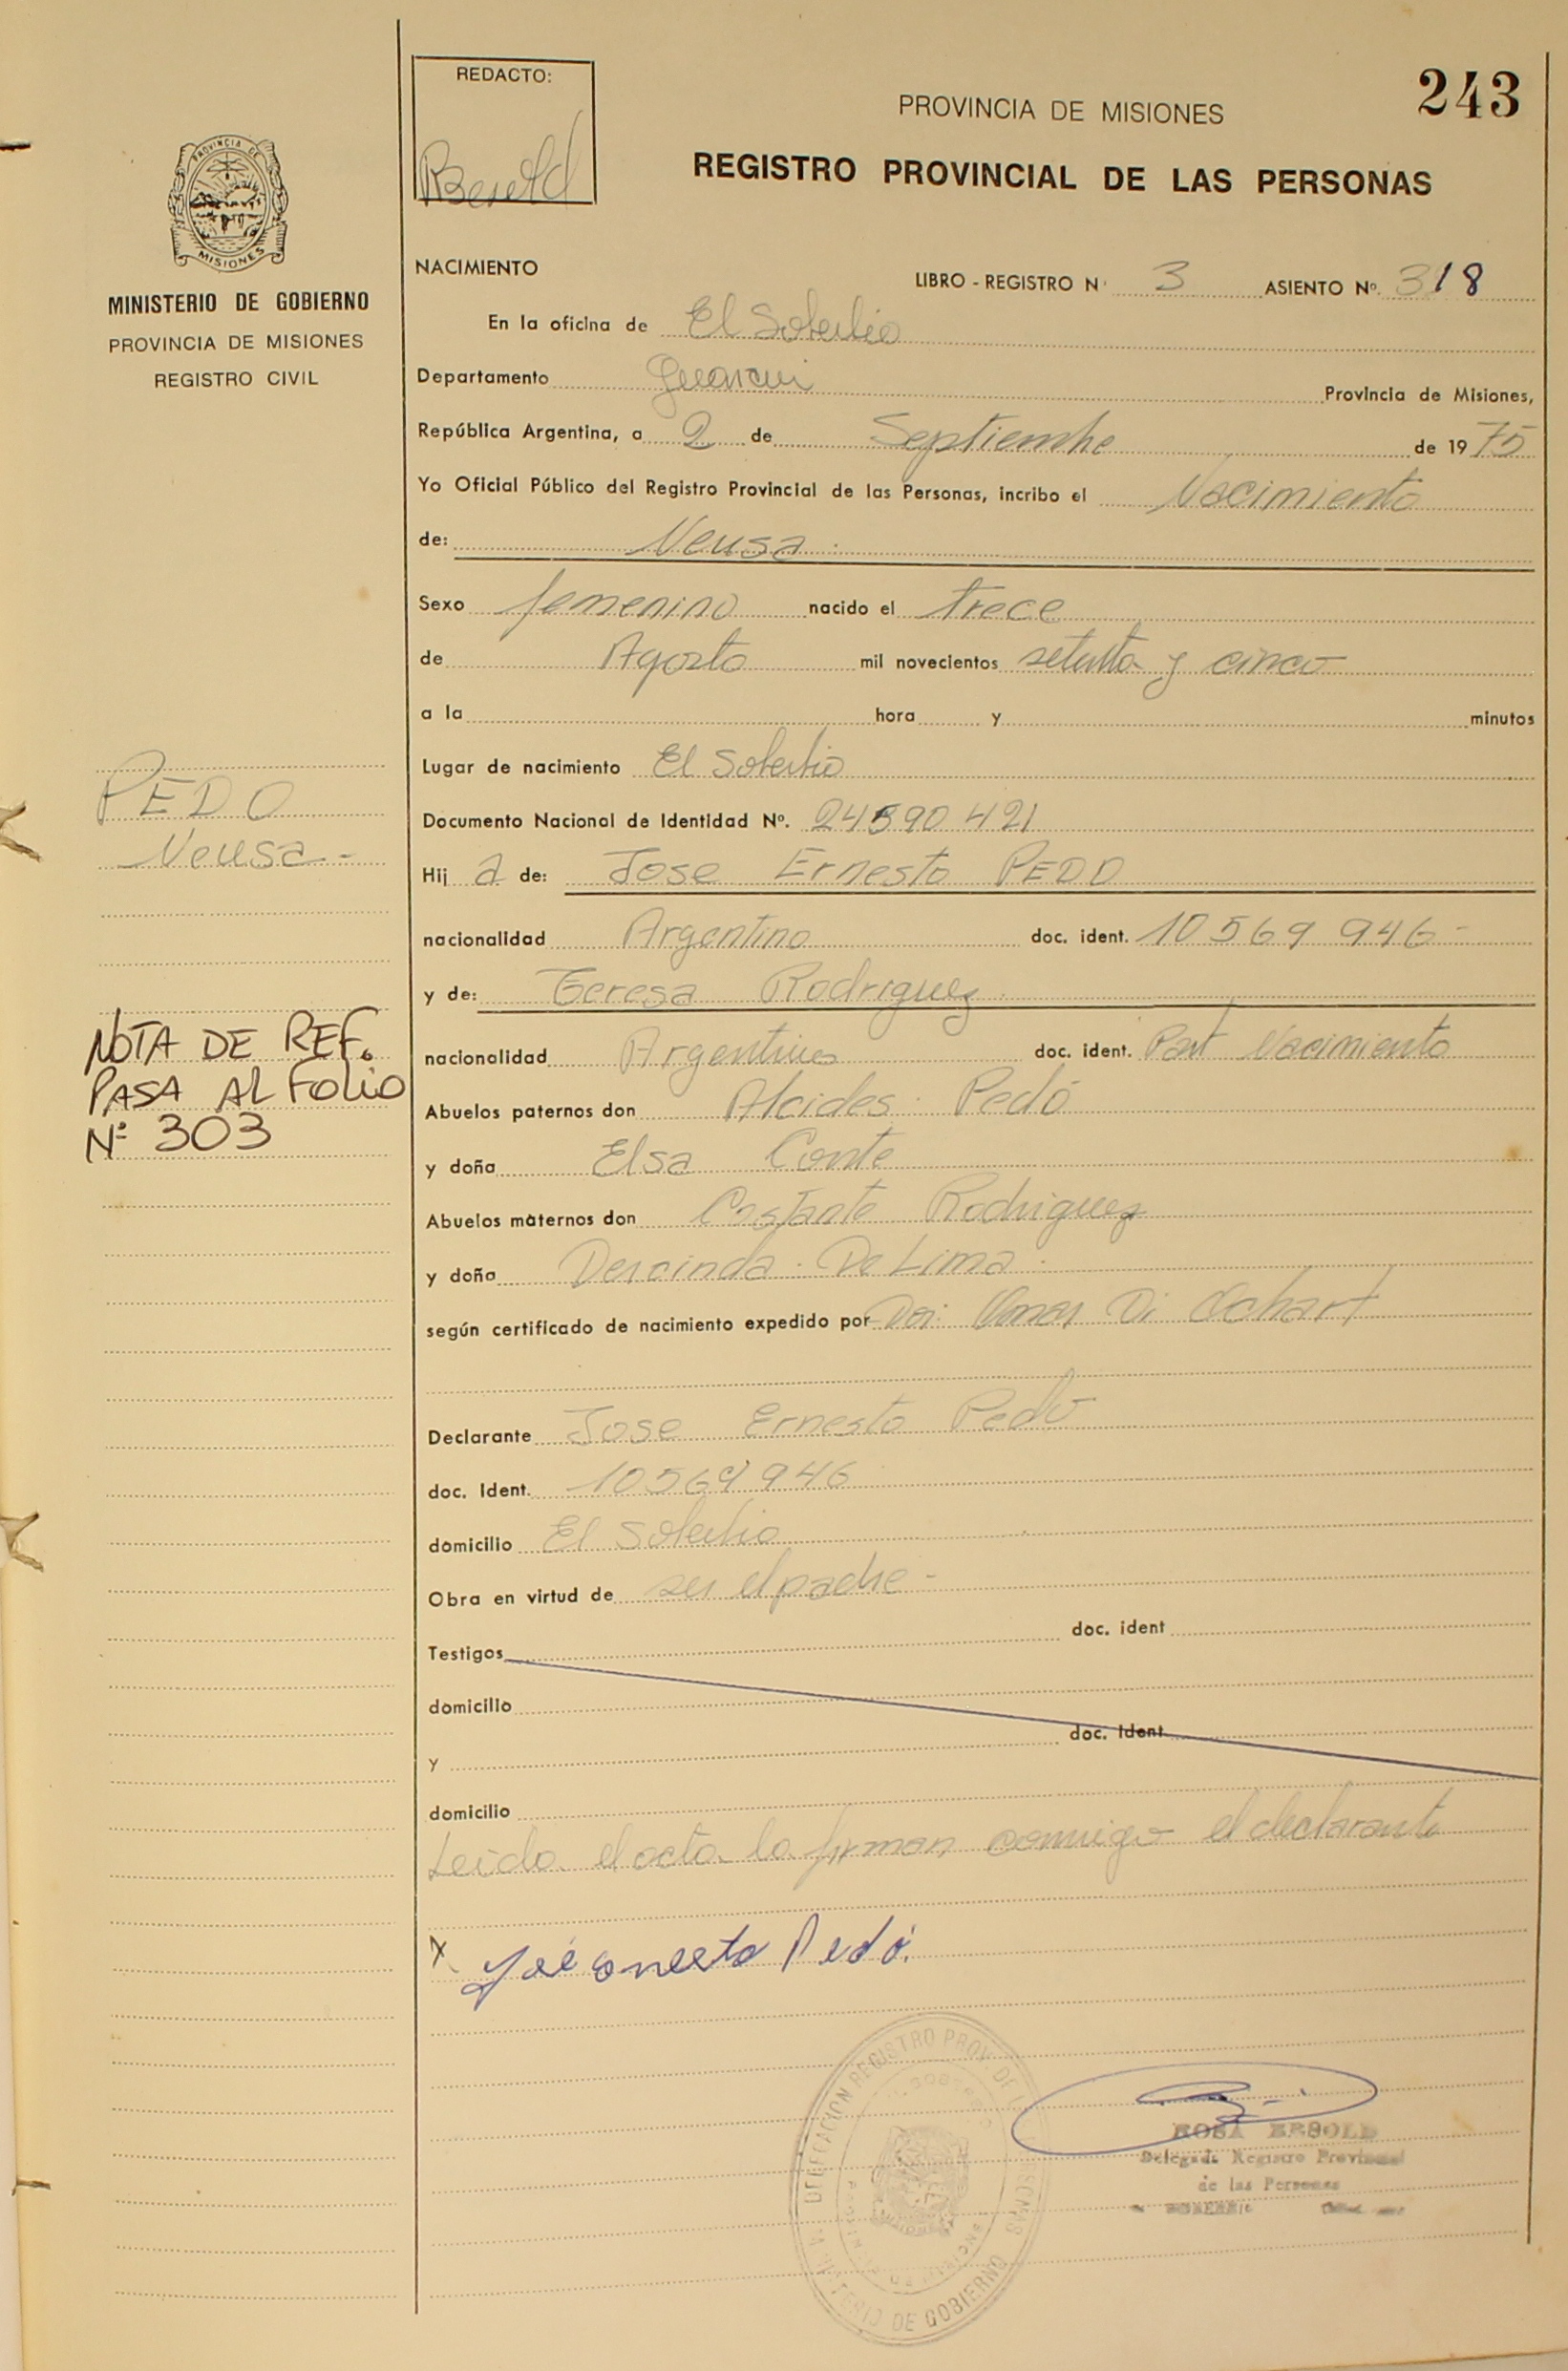 243
REDACTO:
PROVINCIA DE MISIONES
REGISTRO PROVINCIAL DE LAS PERSONAS
PROVINCIA DE
MISIONES
MINISTERIO DE GOBIERNO
PROVINCIA DE MISIONES
REGISTRO CIVIL
NACIMIENTO
LIBRO - REGISTRO N 3 ASIENTO Nº. 318
En la oficina de El Soberbio
Departamento Guarani Provincia de Misiones,
República Argentina, a 2 de Septiembre de 1975
Yo Oficial Público del Registro Provincial de las Personas, incribo el Nacimiento
de: Neusa
Sexo femenino nacido el trece
de Agosto mil novecientos setenta y cinco
a la hora y minutos
Lugar de nacimiento El Soberbio
Documento Nacional de Identidad Nº. 24590421
Hij a de: Jose Ernesto PEDO
nacionalidad Argentino doc. ident. 10569946-
y de: Teresa Rodriguez
nacionalidad Argentina doc. ident. Part Nacimiento
Abuelos paternos don Alcides Pedó
y doña Elsa Conte
Abuelos maternos don Costante Rodriguez
y doña De Lima
según certificado de nacimiento expedido por
Declarante Jose Ernesto Pedó
doc. Ident. 10569946
domicilio El Soberbio
Obra en virtud de ser el padre -
doc. ident
Testigos
domicilio
doc. Ident
y
domicilio
Leida el acta la firman conmigo el declarante
X José Ernesto Pedó.
PEDO
Neusa-
NOTA DE REF.
PASA AL FOLIO
Nº 303
DELEGACION REGISTRO PROV. DE LAS PERSONAS
MINISTERIO DE GOBIERNO
ROSA BESOLD
Delegada Registro Provincial
de las Personas